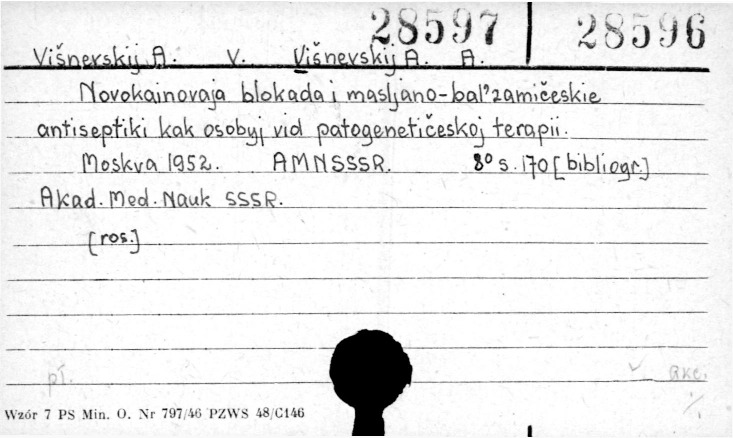 28597 28596
Višnevskij A. V. Višnevskij A. A.
Novokainovaja blokada i masljano-bal'zamičeskie
antiseptiki kak osobyj vid patogenetičeskoj terapii.
Moskva 1952. AMNSSSR. 8° s. 170 [bibliogr.]
Akad. Med. Nauk SSSR.
[ros.]
pł. akc.
Wzór 7 PS Min. O. Nr 797/46 PZWS 48/C146